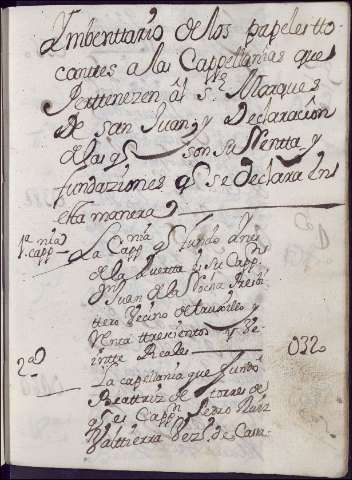 Ymbenttario de los papeles tto
cantes a las Cappellanias que
Perttenezen âl sr. Marques
De san Juan, y Declaración
de las q son su Rentta, y
fundaziones q se declara en
esta manera
1ª capp.nia La Capp.nia q fundo Ynes
de la Puertta y su Capp.n
Juan de la Rocha Presbi
ttero Vecino de truxillo y
Rentta ttrescientos y Ve
intte Reales 032..
2ª La capellania que fundó
Beattriz de torres de
q es Capp.n Pedro Ruiz
Valttierra Vez.º de Cam